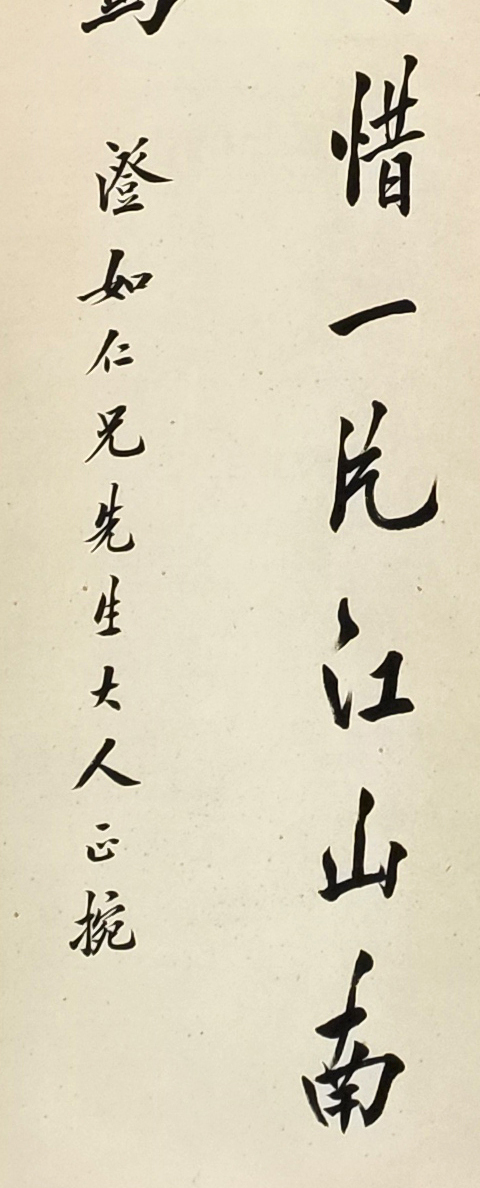 惜一片江山南
澄如仁兄先生大人正捥